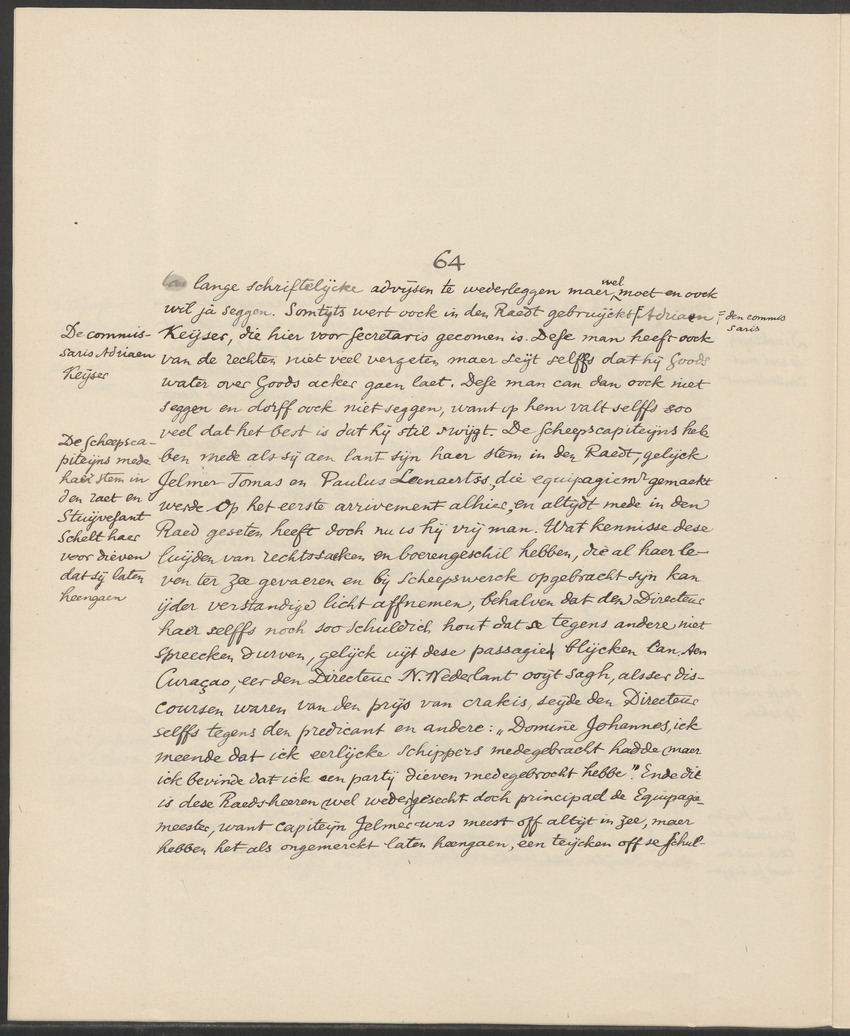 64
lange schriftelijcke advijsen te wederleggen maer wel moet en oock
wil ja seggen. Somtyts wert oock in den Raedt gebruijckt Adriaen
= den commis
saris
De commis-
saris Adriaen
Keijser
Keijser, die hier voor secretaris gecomen is. Dese man heeft oock
van de rechten niet veel vergeten maer seijt selffs dat hij Goods
water over Goods acker gaen laet. Dese man can dan oock niet
seggen en dorff oock niet seggen, want op hem valt selffs soo
veel dat het best is dat hij stil swijgt. De Scheepscapiteijns heb
De Scheepsca-
piteijns mede
haer stem in
den raet en
Stuijvesant
Schelt haer
voor dieven
dat sij laten
heengaen
ben mede als sij aen lant sijn haer stem in den Raedt, gelijck
Jelmer Tomas en Paulus Leenaertss, die equipagiemr gemaekt
werde op het eerste arrivement alhier, en altijdt mede in den
Raed geseten heeft doch nu is hij vrij man. Wat kennisse dese
luijden van rechtssaeken en boerengeschil hebben, die al haer le-
ven ter zee gevaeren en bij scheepswerck opgebracht sijn kan
ijder verstandige licht affnemen, behalven dat den Directeur
haer selffs noch soo schuldich hout dat se tegens andere niet
spreecken durven, gelijck uijt dese passagie blijcken can. Aen
Curaçao, eer den Directeur N. Nederlant ooijt sagh, alsser dis-
coursen waren van den prijs van crakis, seijde den Directeur
selffs tegens den predicant en andere: „Domine Johannes, ick
meende dat ick eerlijcke Schippers medegebracht hadde maer
ick bevinde dat ick een partij dieven medegebrocht hebbe". Ende dit
is dese Raedsheeren wel wedergesecht doch principael de Equipagie
meester, want capiteijn Jelmer was meest off altijt in zee, maer
hebben het als ongemerckt laten heengaen, een teijcken off se schul-